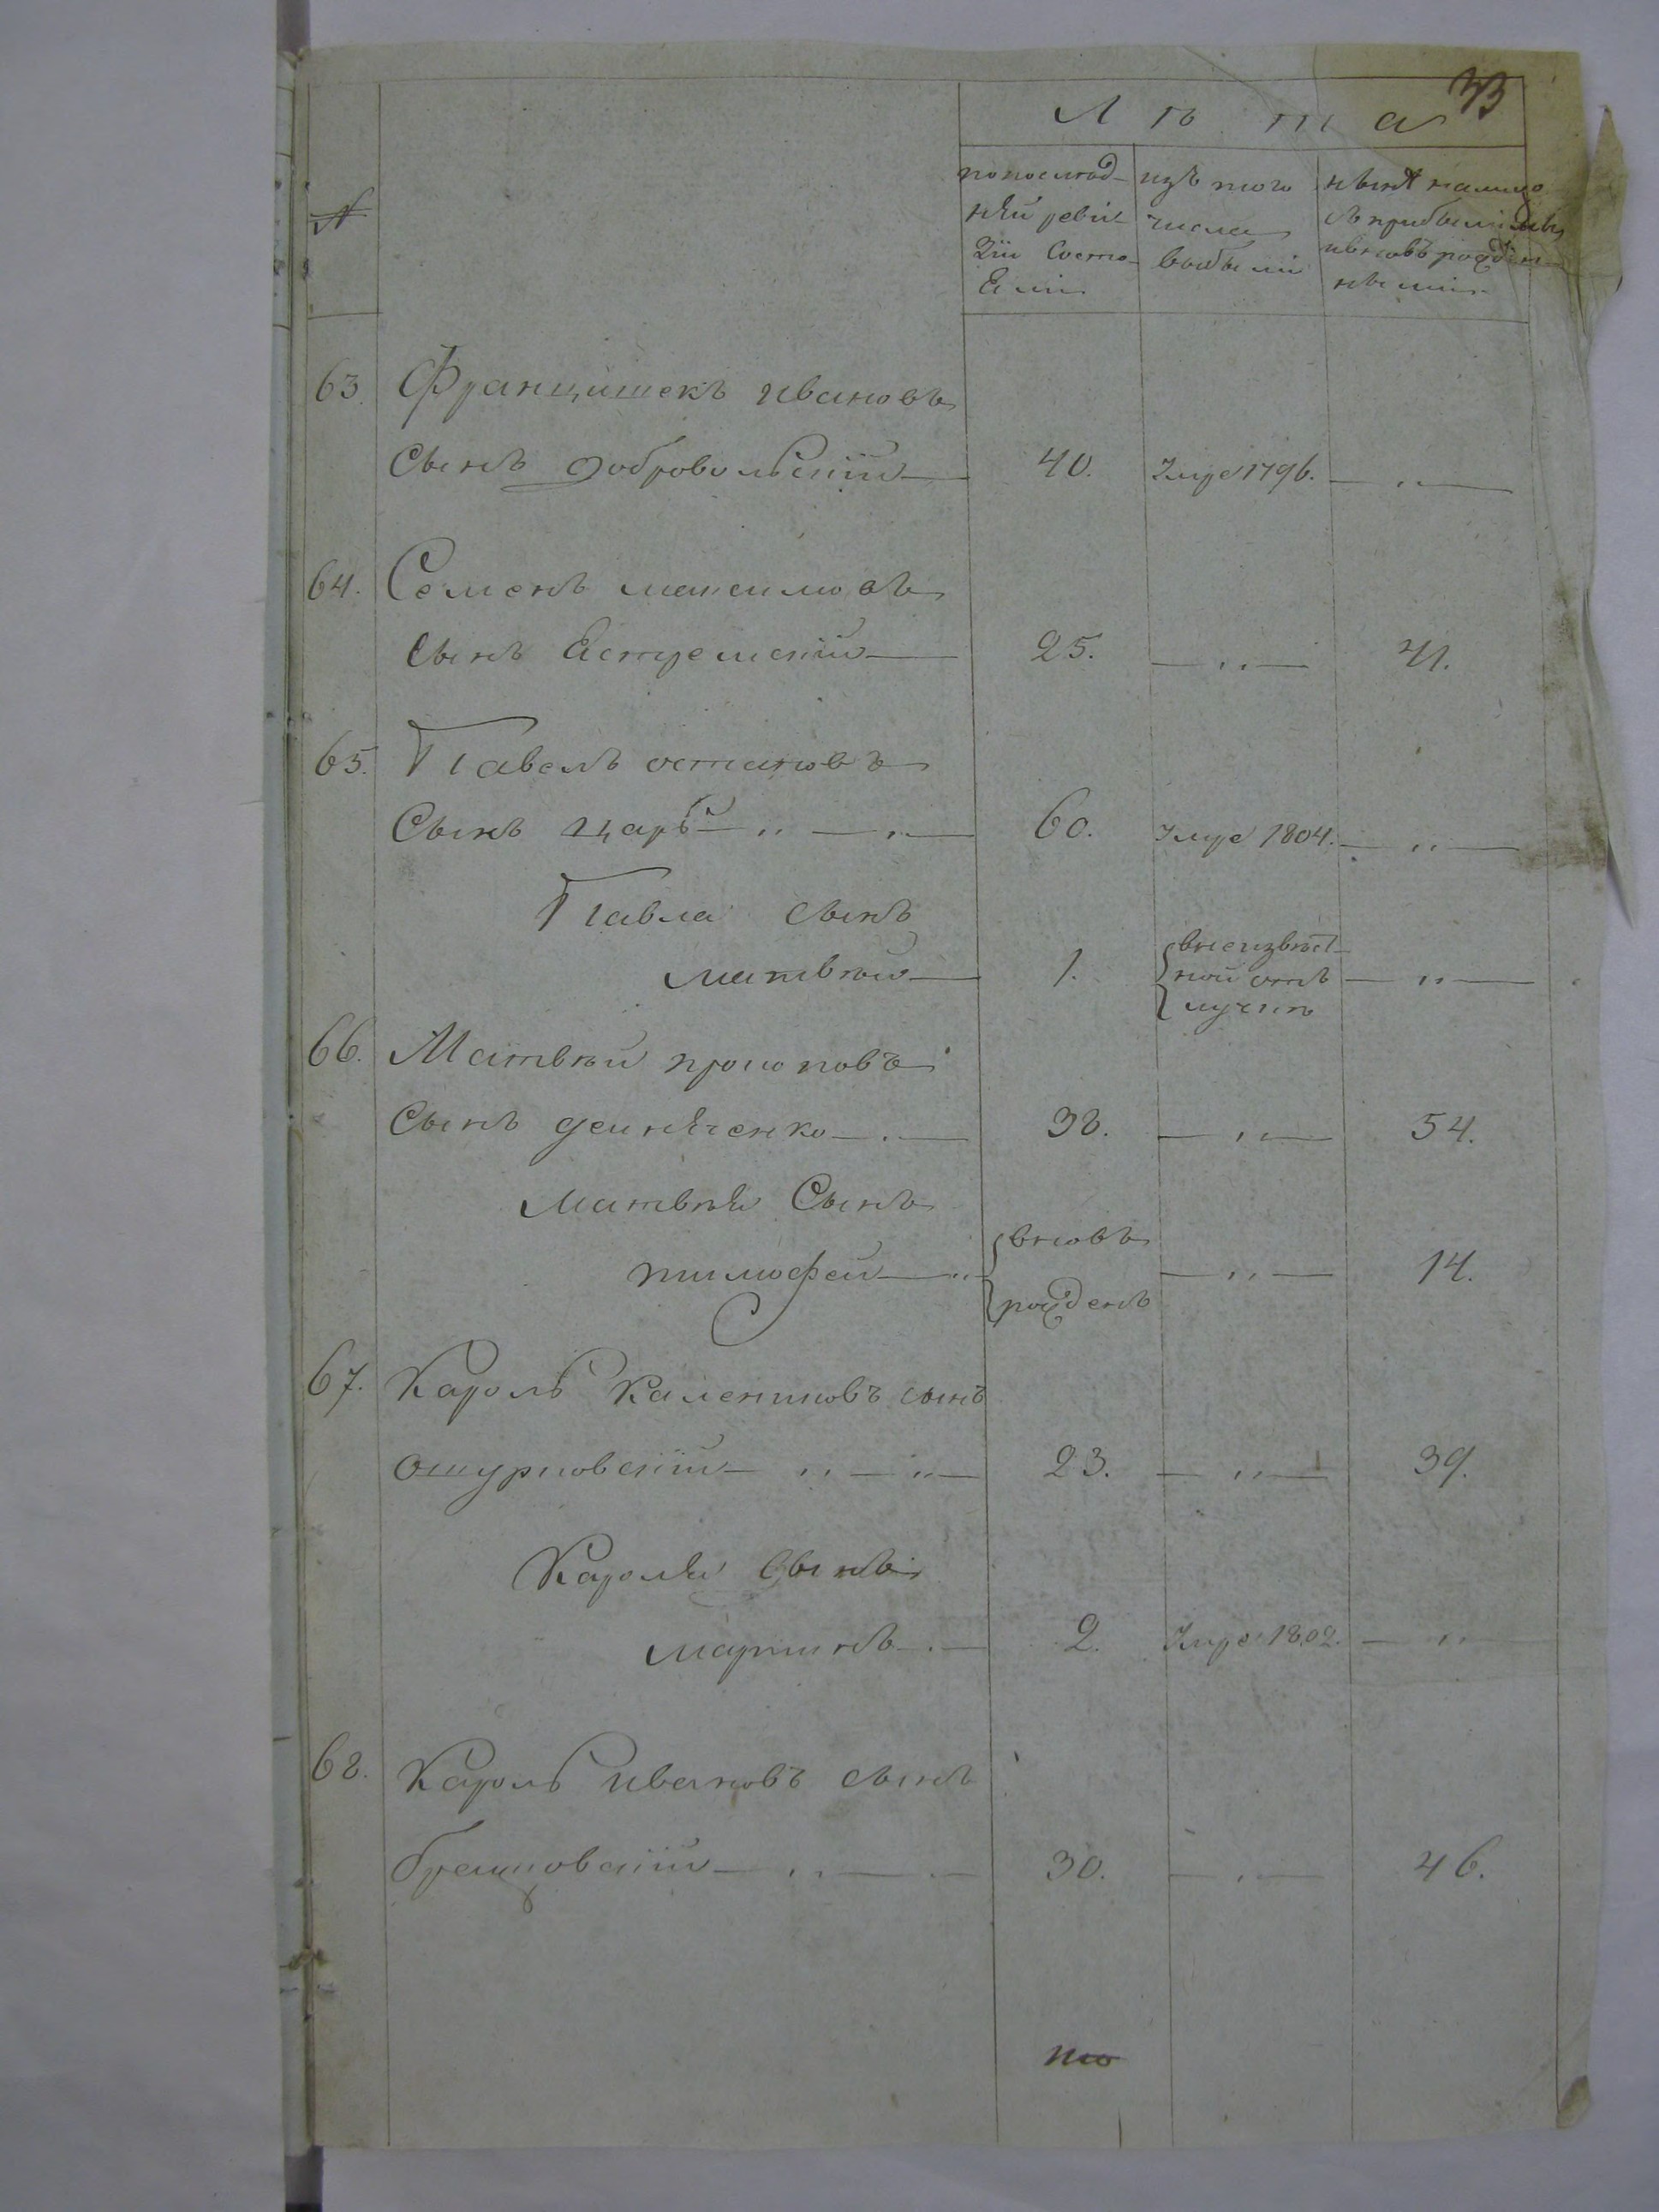 33
Л ѣ т а
№
по послѣд-
ней реви-
зіи состо-
яли
изъ того
числа
выбыли
нынѣ налицо
съ прибылыми
и вновь рожден-
ными
63. Францишекъ Ивановъ
Сынъ Добровольскій 40. Умре 1796. — „ —
64. Семенъ Максимовъ
Сынъ Ястремскій 25. — „ — 41.
65. Павелъ Остаповъ
Сынъ Царь — „ — „ — 60. Умре 1804. — „ —
Павла Сынъ
Матвѣй 1. в неизвѣст-
ной отъ
лучкѣ — „ —
66. Матвѣй Прокоповъ
Сынъ 38. — „ — 54.
Матвѣя Сынъ
Тимофей — „ вновь
рожденъ — „ — 14.
67. Кароль Калениковъ сынъ
Ошурковскій — „ — „ — 23. — „ — 39.
Кароля Сынъ
Мартинъ 2. Умре 1802. — „
68. Кароль Ивановъ сынъ
30. — „ — 46.